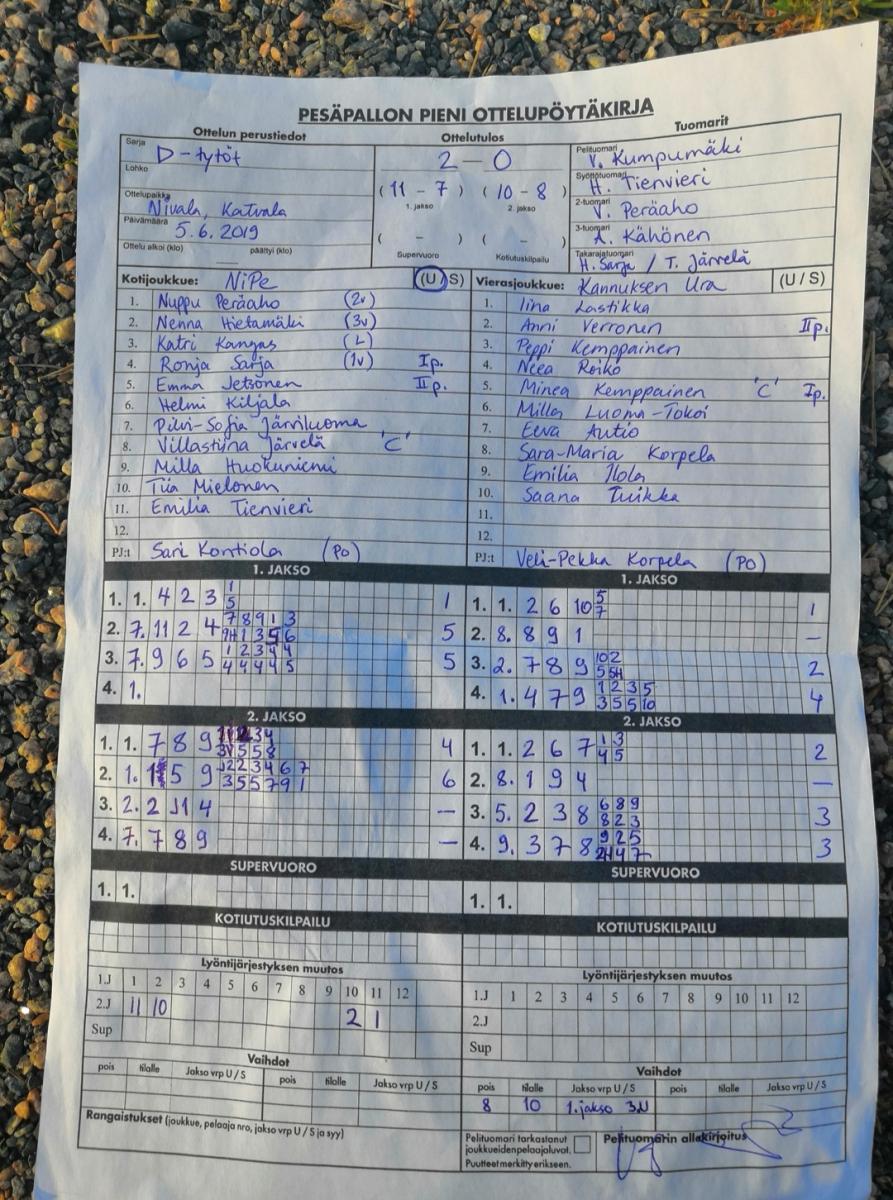 PESÄPALLON PIENI OTTELUPÖYTÄKIRJA
Ottelun perustiedot
Sarja D-tytöt
Lohko
Ottelupaikka Nivala, Katvala
Päivämäärä 5.6.2019
Ottelu alkoi (klo) päättyi (klo)
Ottelutulos
2 - 0
(11 - 7) (10 - 8)
1. jakso 2. jakso
( - ) ( - )
Supervuoro Kotiutuskilpailu
Tuomarit
Pelituomari V. Kumpumäki
Syöttötuomari H. Tienvieri
2-tuomari V. Peräaho
3-tuomari A. Kähönen
Takarajatuomari H. Sarja / T. Järvelä
Kotijoukkue: NiPe (U/S)
1. Nuppu Peräaho (2v)
2. Nenna Hietamäki (3v)
3. Katri Kangas (L)
4. Ronja Sarja (1v) Ip.
5. Emma Jetsonen IIp.
6. Helmi Kiljala
7. Pilvi-Sofia Järviluoma
8. Villastiina Järvelä 'C'
9. Milla Huokuniemi
10. Tiia Mielonen
11. Emilia Tienvieri
12.
PJ:t Sari Kontiola (PO)
Vierasjoukkue: Kannuksen Ura (U/S)
1. Iina Lastikka
2. Anni Verronen IIp.
3. Peppi Kemppainen
4. Neea Roiko
5. Minea Kemppainen 'C' Ip.
6. Milla Luoma-Tokoi
7. Eeva Autio
8. Sara-Maria Korpela
9. Emilia Ilola
10. Saana Tuikka
11.
12.
PJ:t Veli-Pekka Korpela (PO)
1. JAKSO
1. 1. 4 2 3 1 5 1
2. 7. 11 2 4 7 8 9 1 3 5
3. 7. 9 6 5 1 2 3 4 4 4 4 4 4 5 5
4. 1.
1. JAKSO
1. 1. 2 6 10 5 7 1
2. 8. 8 9 1 -
3. 2. 7 8 9 10 2 5 5H 2
4. 1. 4 7 9 1 2 3 5 3 5 5 10 4
2. JAKSO
1. 1. 7 8 9 4
2. 1. 5 9 1 2 2 3 4 6 7 3 5 5 7 9 1 6
3. 2. 2 11 4 -
4. 7. 7 8 9 -
2. JAKSO
1. 1. 2 6 7 1 3 4 5 2
2. 8. 1 9 4 -
3. 5. 2 3 8 6 8 9 8 2 3 3
4. 9. 3 7 8 9 2 5 2H 4 7 3
SUPERVUORO
1. 1.
SUPERVUORO
1. 1.
KOTIUTUSKILPAILU
KOTIUTUSKILPAILU
Lyöntijärjestyksen muutos
1.J 1 2 3 4 5 6 7 8 9 10 11 12
2.J 11 10 2 1
Sup
Lyöntijärjestyksen muutos
1.J 1 2 3 4 5 6 7 8 9 10 11 12
2.J
Sup
Vaihdot
pois tilalle Jakso vrp U / S pois tilalle Jakso vrp U / S
Vaihdot
pois tilalle Jakso vrp U / S pois tilalle Jakso vrp U / S
8 10 1.jakso 3U
Rangaistukset (joukkue, pelaaja nro, jakso vrp U / S ja syy)
Pelituomari tarkastanut
joukkueidenpelaajaluvat.
Puutteet merkitty erikseen.
Pelituomarin allekirjoitus